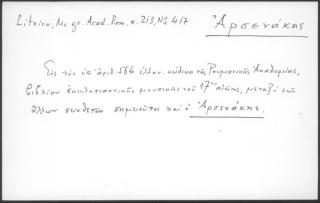 Litzica, Mc gr. Acad. Rom, σ. 213, Nº 4/7
Ἀρσενάκης
Εἰς τὸν ὑπ' ἀριθ. 564 ἑλλην. κώδικα τῆς Ρουμανικῆς Ἀκαδημίας,
βιβλίον ἐκκλησιαστικῆς μουσικῆς τοῦ 17ου αἰῶνος, μεταξὺ τῶν
ἄλλων συνθετῶν σημειοῦται καὶ ὁ Ἀρσενάκης.